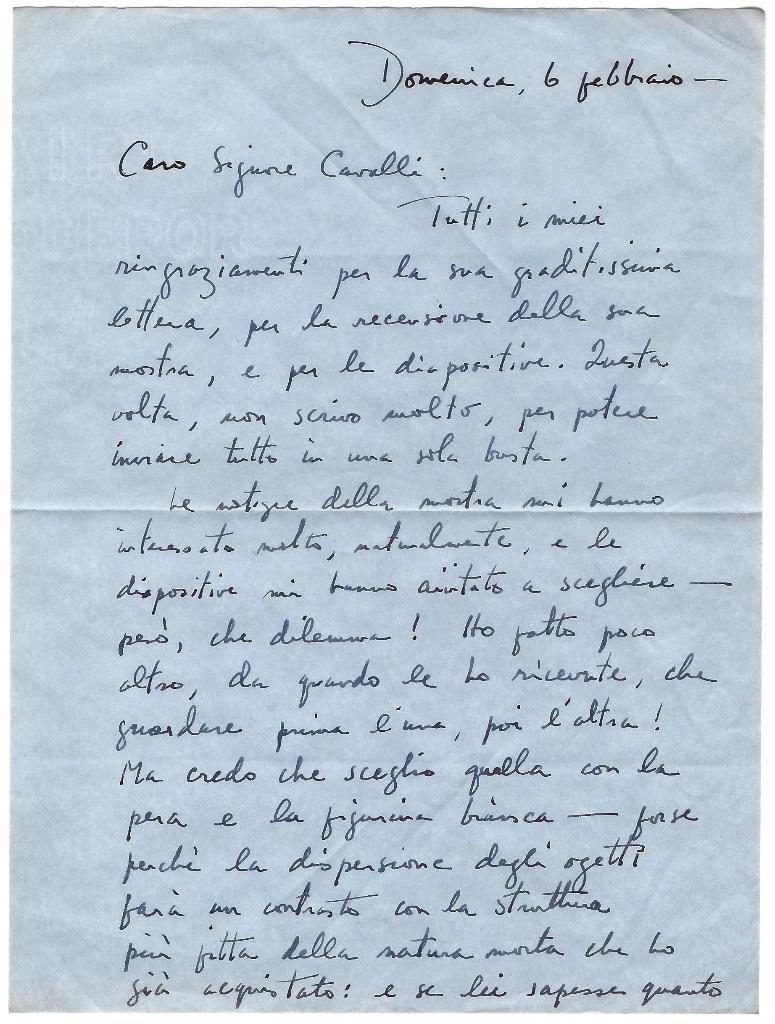 Domenica, 6 febbraio —
Caro Signore Cavalli:
Tutti i miei
ringraziamenti per la sua graditissima
lettera, per la recensione della sua
mostra, e per le diapositive. Questa
volta, non scrivo molto, per potere
inviare tutto in una sola busta.
Le notizie della mostra mi hanno
interessato molto, naturalmente, e le
diapositive mi hanno aiutato a scegliere —
però, che dilemma! Ho fatto poco
altro, da quando le ho ricevute, che
guardare prima l'una, poi l'altra!
Ma credo che sceglio quella con la
pera e la figurina bianca — forse
perchè la dispersione degli ogetti
farà un contrasto con la struttura
più fitta della natura morta che ho
già acquistato: e se lei sapesse quanto